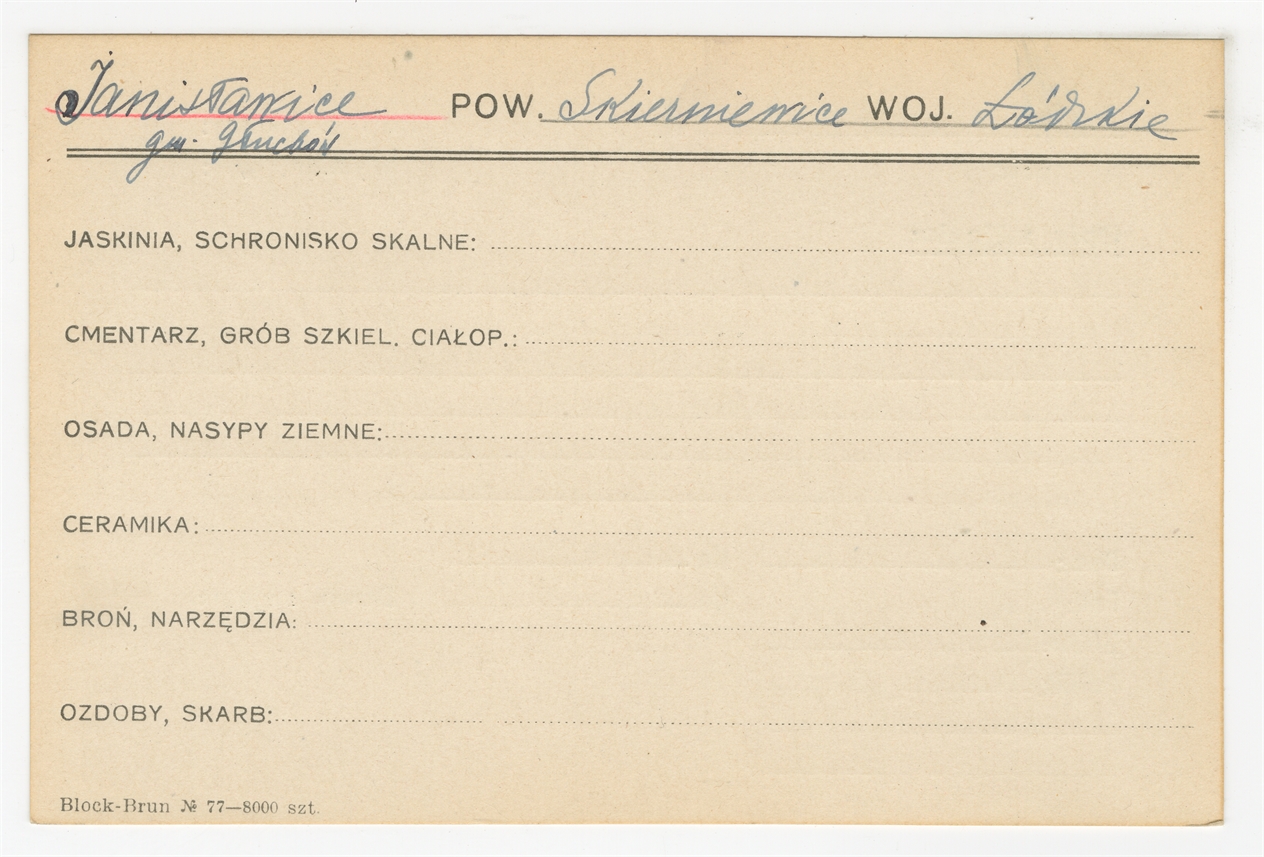 Janisławice POW. Skierniewice WOJ. Łódzkie
gm. Głuchów
JASKINIA, SCHRONISKO SKALNE:
CMENTARZ, GRÓB SZKIEL. CIAŁOP.:
OSADA, NASYPY ZIEMNE:
CERAMIKA:
BROŃ, NARZĘDZIA:
OZDOBY, SKARB:
Block-Brun № 77—8000 szt.